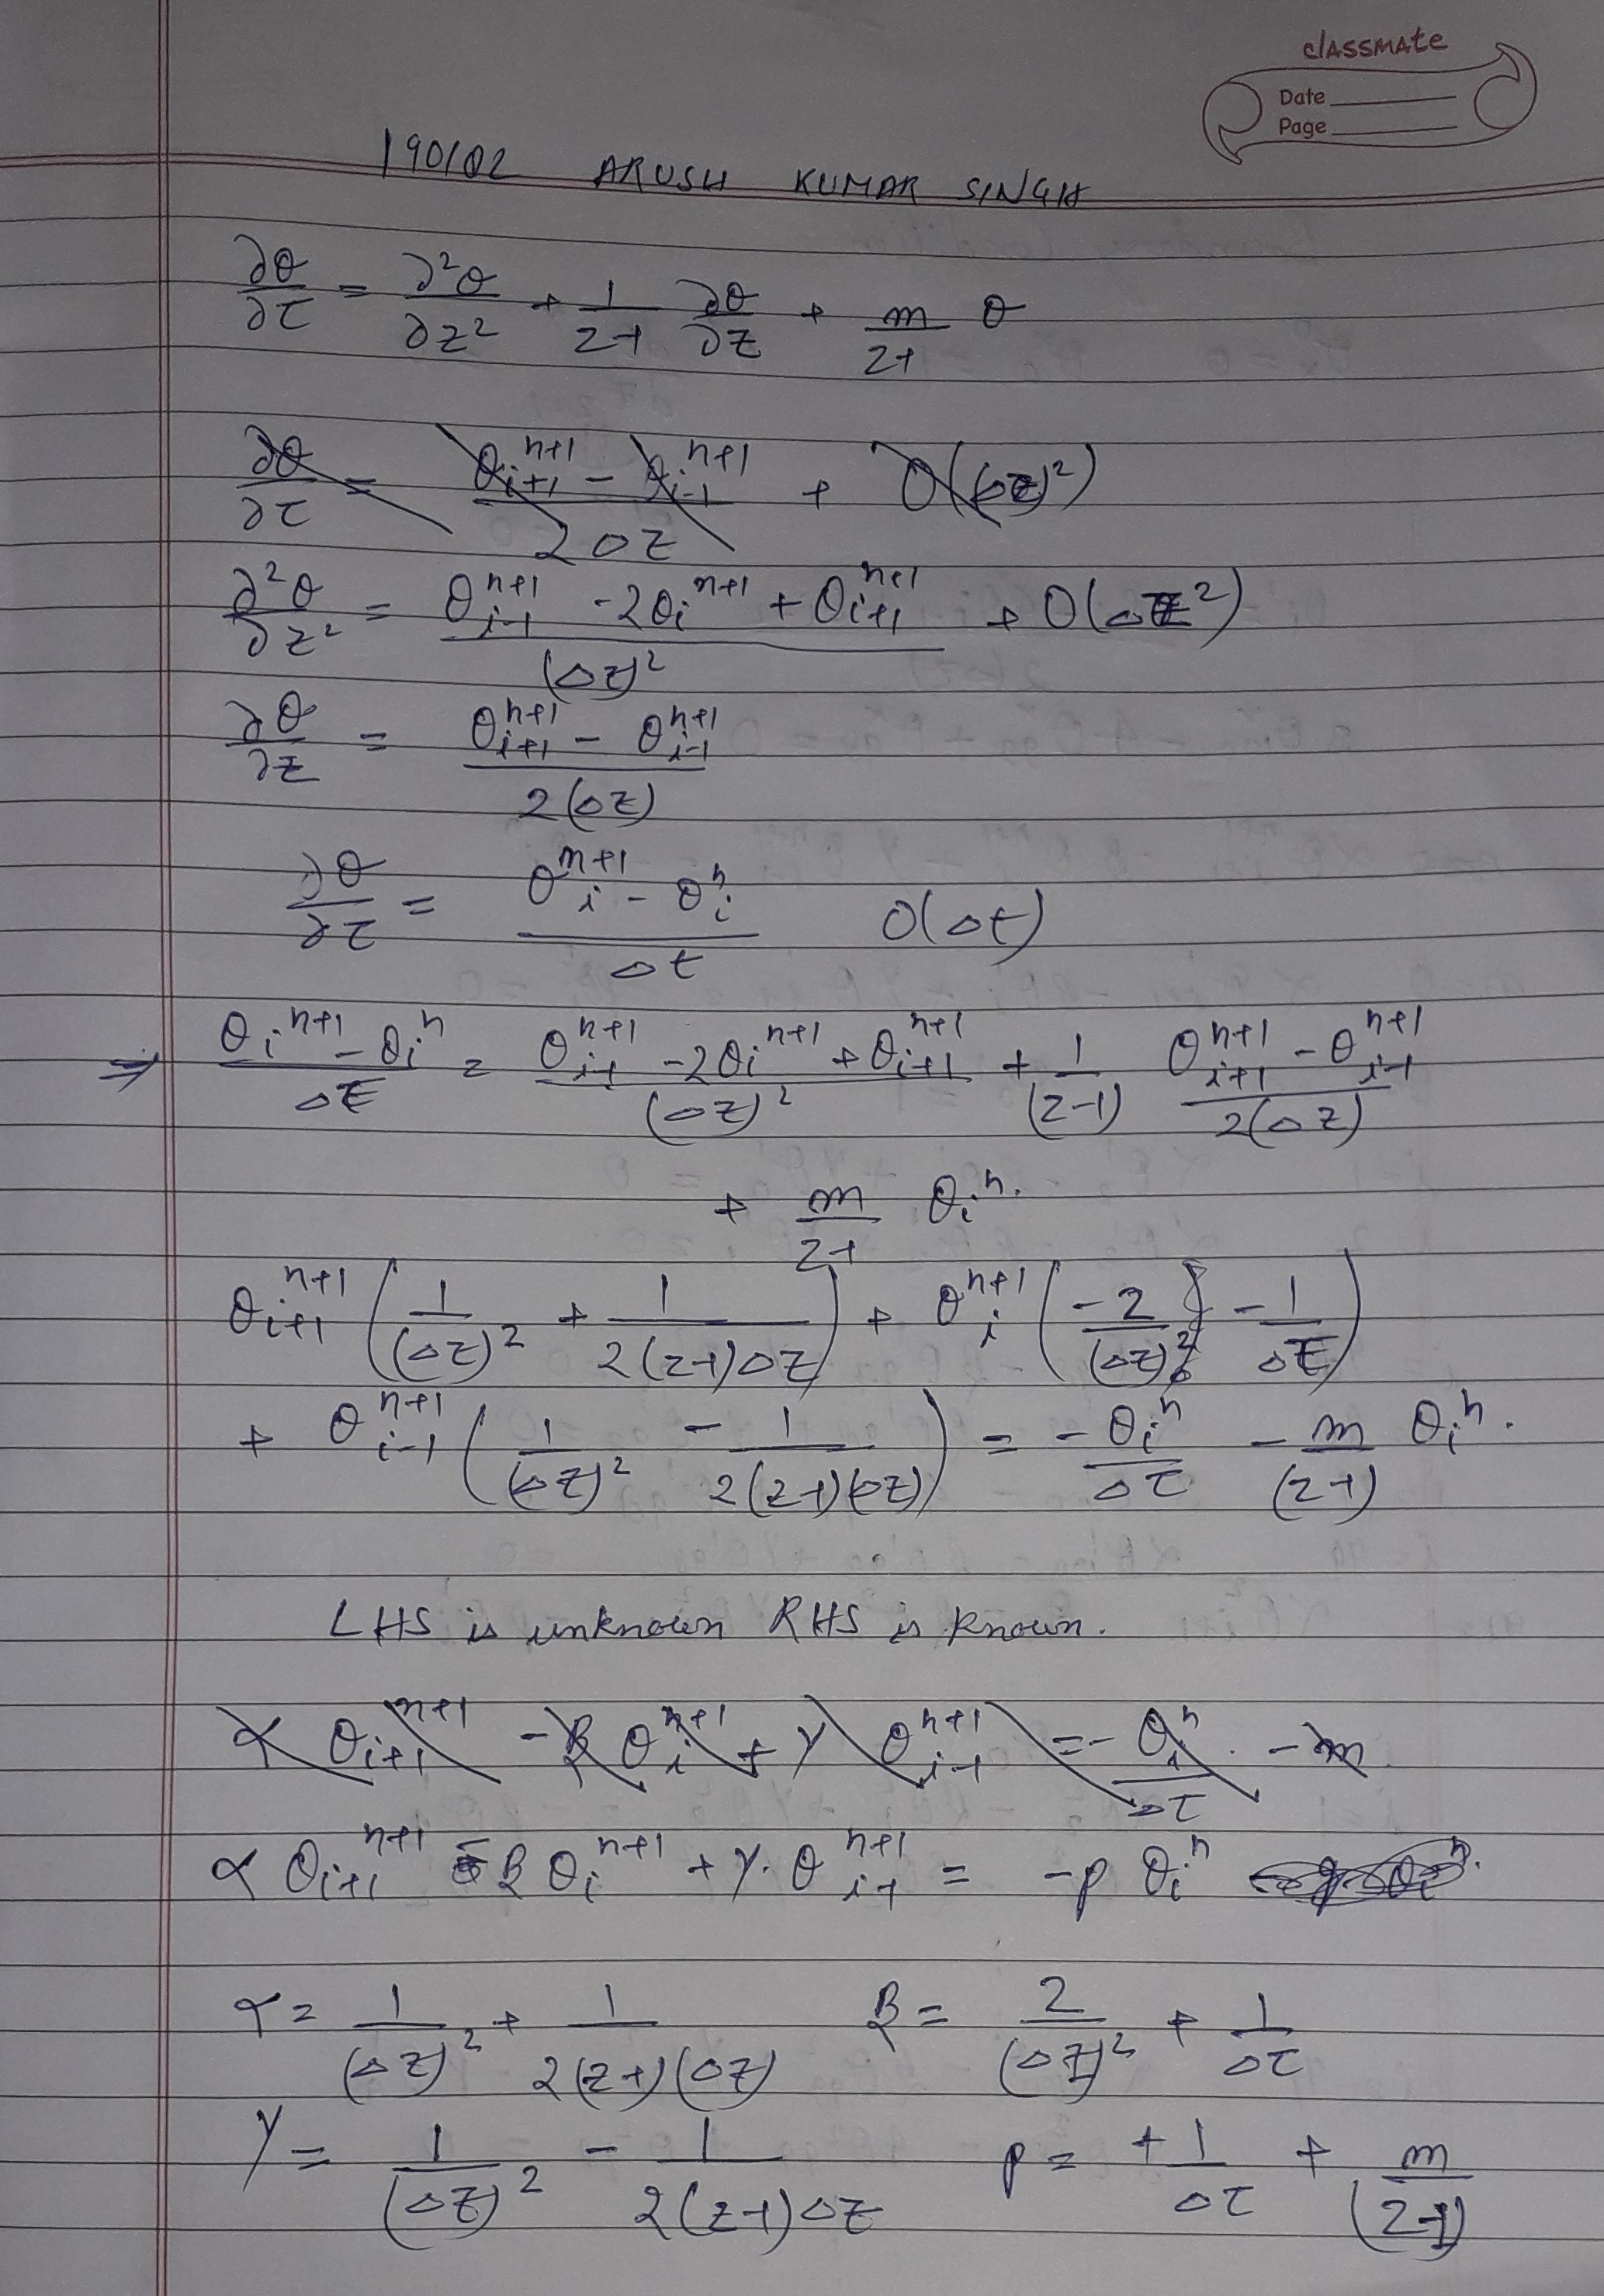 classmate
Date
Page
190102 ARUSH KUMAR SINGH
∂θ/∂τ = ∂²θ/∂z² + 1/(z-1) ∂θ/∂z + m/(z-1) θ
∂θ/∂τ = (θ_{i+1}^{n+1} - θ_{i-1}^{n+1})/(2Δz) + O((Δz)²)
∂²θ/∂z² = (θ_{i-1}^{n+1} - 2θ_i^{n+1} + θ_{i+1}^{n+1})/(Δz)² + O(Δz²)
∂θ/∂z = (θ_{i+1}^{n+1} - θ_{i-1}^{n+1})/(2(Δz))
∂θ/∂τ = (θ_i^{n+1} - θ_i^n)/Δt O(Δt)
⇒ (θ_i^{n+1} - θ_i^n)/Δτ = (θ_{i-1}^{n+1} - 2θ_i^{n+1} + θ_{i+1}^{n+1})/(Δz)² + 1/(z-1) (θ_{i+1}^{n+1} - θ_{i-1}^{n+1})/(2(Δz))
+ m/(z-1) θ_i^n.
θ_{i+1}^{n+1} (1/(Δz)² + 1/(2(z-1)Δz)) + θ_i^{n+1} (-2/(Δz)² - 1/Δτ)
+ θ_{i-1}^{n+1} (1/(Δz)² - 1/(2(z-1)(Δz))) = -θ_i^n/Δτ - m/(z-1) θ_i^n.
LHS is unknown RHS is known.
α θ_{i+1}^{n+1} - β θ_i^{n+1} + γ θ_{i-1}^{n+1} = -θ_i^n/Δτ - m
α θ_{i+1}^{n+1} - β θ_i^{n+1} + γ. θ_{i-1}^{n+1} = -p θ_i^n
α = 1/(Δz)² + 1/(2(z-1)(Δz)) β = 2/(Δz)² + 1/Δτ
γ = 1/(Δz)² - 1/(2(z-1)Δz) p = +1/Δτ + m/(z-1)